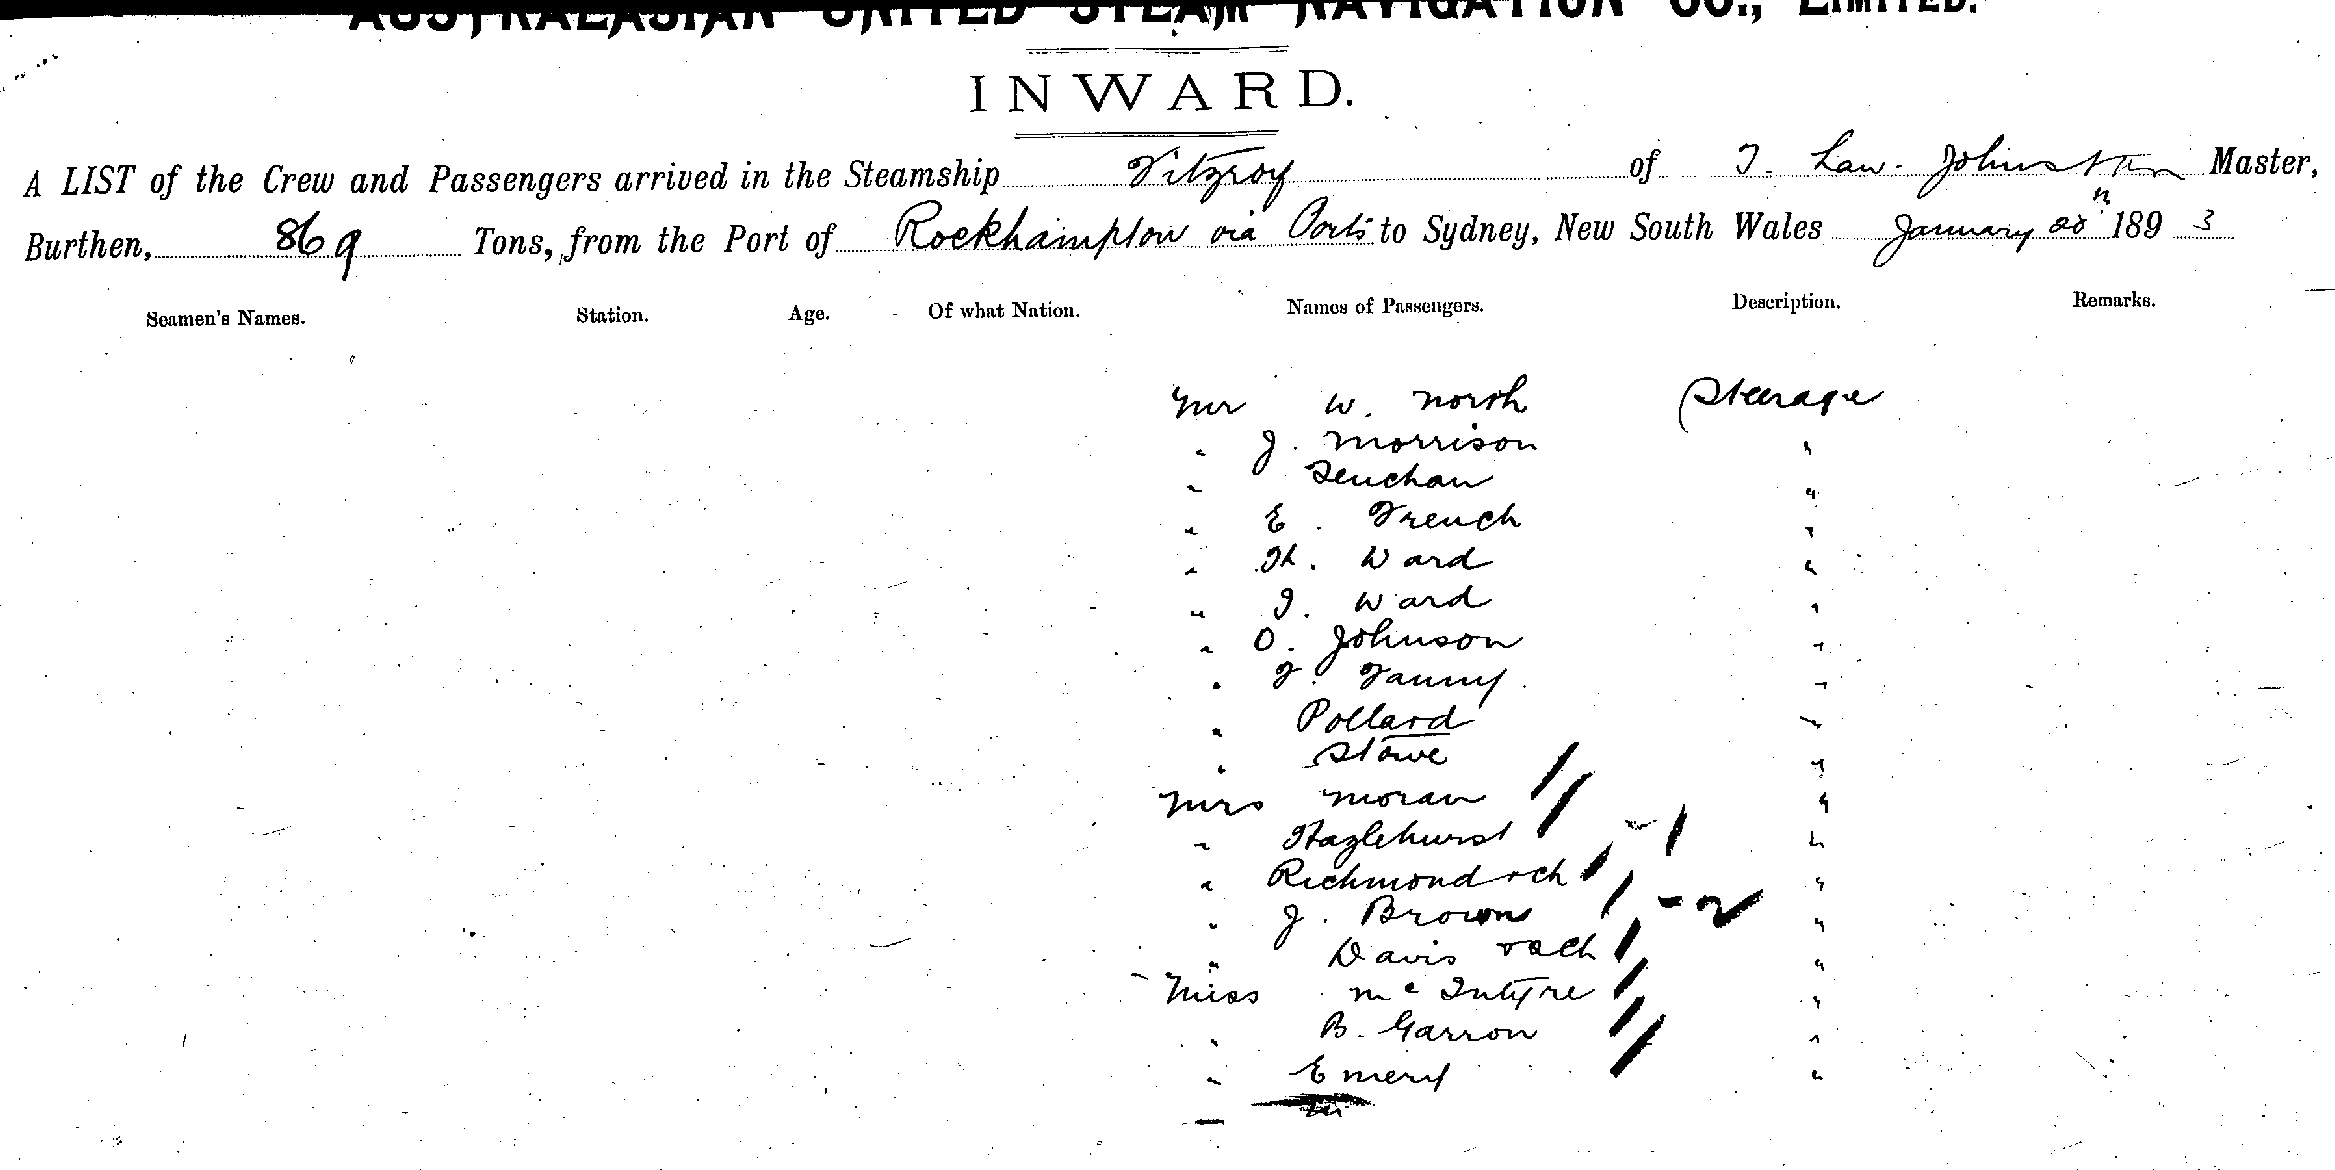 AUSTRALASIAN UNITED STEAM NAVIGATION CO., LIMITED.
INWARD.
A LIST of the Crew and Passengers arrived in the Steamship Fitzroy of T. Law. Johnston Master,
Burthen, 869 Tons, from the Port of Rockhampton via Ports to Sydney, New South Wales January 28th 1893
Seamen's Names. Station. Age. Of what Nation. Names of Passengers. Description. Remarks.
Mr W. North Steerage
" J. Morrison "
" "
" E. French "
" H. Ward "
" J. Ward "
" O. Johnson "
" F. Fanny "
" Pollard "
" Stowe "
Mrs Moran "
" Hazlehurst - 1 "
" Richmond + ch "
" J. Brown - 2 "
" Davis + ch "
Miss McIntyre "
" B. Garron "
" Emery "